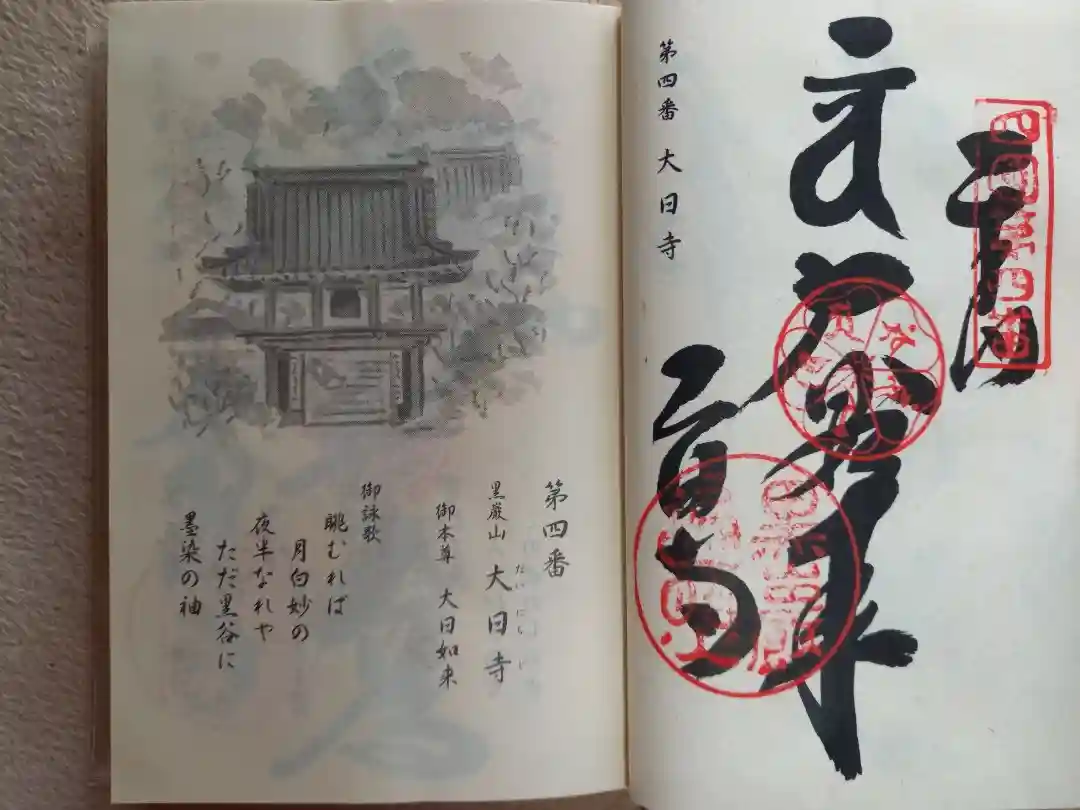 四国第四番
奉納
第四番 大日寺
第四番
黒巌山 大日寺
だいにちじ
御本尊 大日如来
御詠歌
眺むれば
月白妙の
夜半なれや
ただ黒谷に
墨染の袖